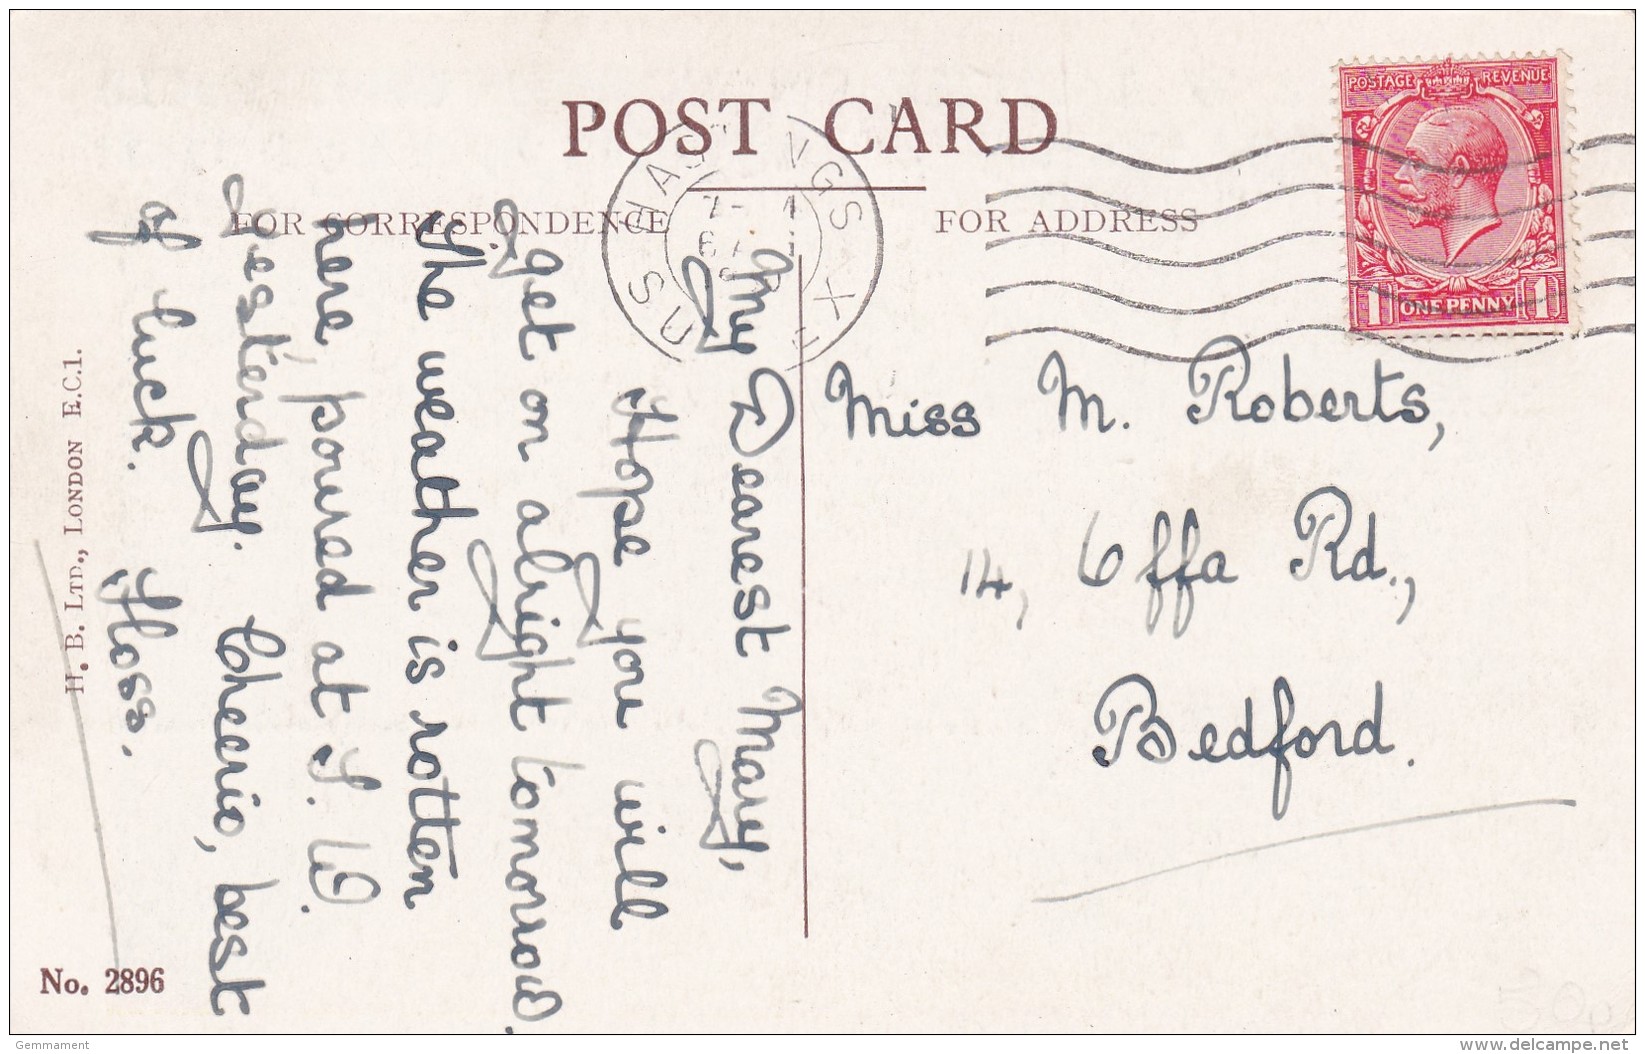 POST CARD
FOR CORRESPONDENCE
FOR ADDRESS
POSTAGE REVENUE
1 ONE PENNY 1
HASTINGS
SUSSEX
My Dearest Mary,
Hope you will
get on alright tomorrow.
The weather is rotten
here, poured at S. W
yesterday. Cheerio, best
of luck. Floss.
Miss M. Roberts,
14, Offa Rd.,
Bedford.
H. B. LTD., LONDON E.C.1.
No. 2896
50p
Gemmament
www.delcampe.net